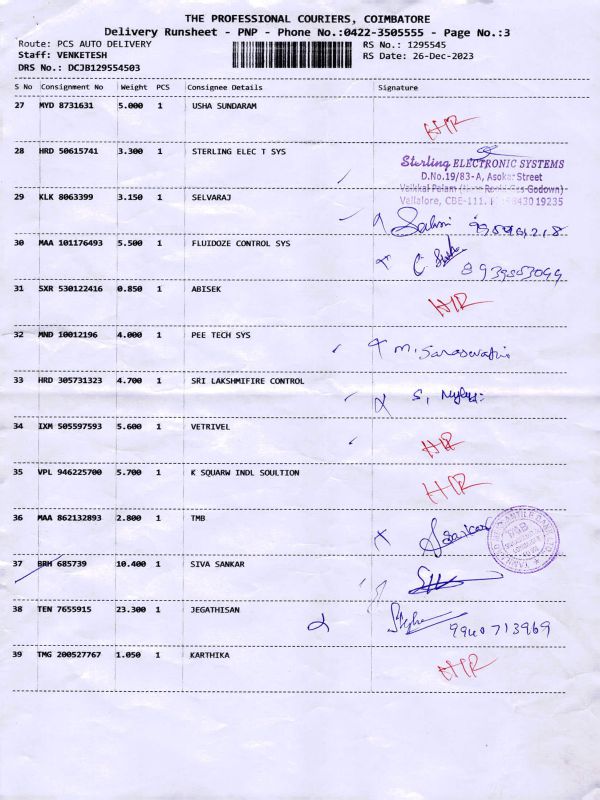 THE PROFESSIONAL COURIERS, COIMBATORE
Delivery Runsheet - PNP - Phone No.:0422-3505555 - Page No.:3
Route: PCS AUTO DELIVERY RS No.: 1295545
Staff: VENKETESH RS Date: 26-Dec-2023
DRS No.: DCJB129554503
S No Consignment No Weight PCS Consignee Details Signature
27 MYD 8731631 5.000 1 USHA SUNDARAM
HR
28 HRD 50615741 3.300 1 STERLING ELEC T SYS
Sterling ELECTRONIC SYSTEMS
D.No.19/83-A, Asokar Street
Vellalore, CBE-111.
29 KLK 8063399 3.150 1 SELVARAJ
30 MAA 101176493 5.500 1 FLUIDOZE CONTROL SYS
31 SXR 530122416 0.850 1 ABISEK
HR
32 MND 10012196 4.000 1 PEE TECH SYS
M. Saraswathi
33 HRD 305731323 4.700 1 SRI LAKSHMIFIRE CONTROL
34 IXM 505597593 5.600 1 VETRIVEL
HR
35 VPL 946225700 5.700 1 K SQUARW INDL SOULTION
HR
36 MAA 862132893 2.800 1 TMB
37 BRH 685739 10.400 1 SIVA SANKAR
38 TEN 7655915 23.300 1 JEGATHISAN
9940713969
39 TMG 200527767 1.050 1 KARTHIKA
HR